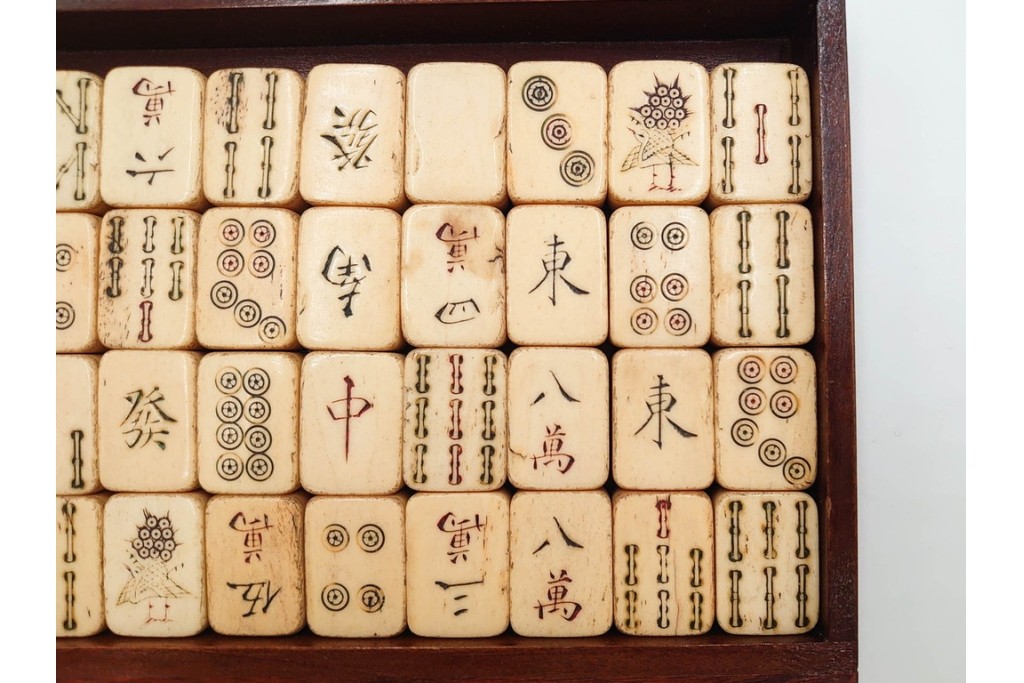 六
萬
發
南
四
萬
東
發
中
八
萬
東
伍
萬
三
萬
八
萬